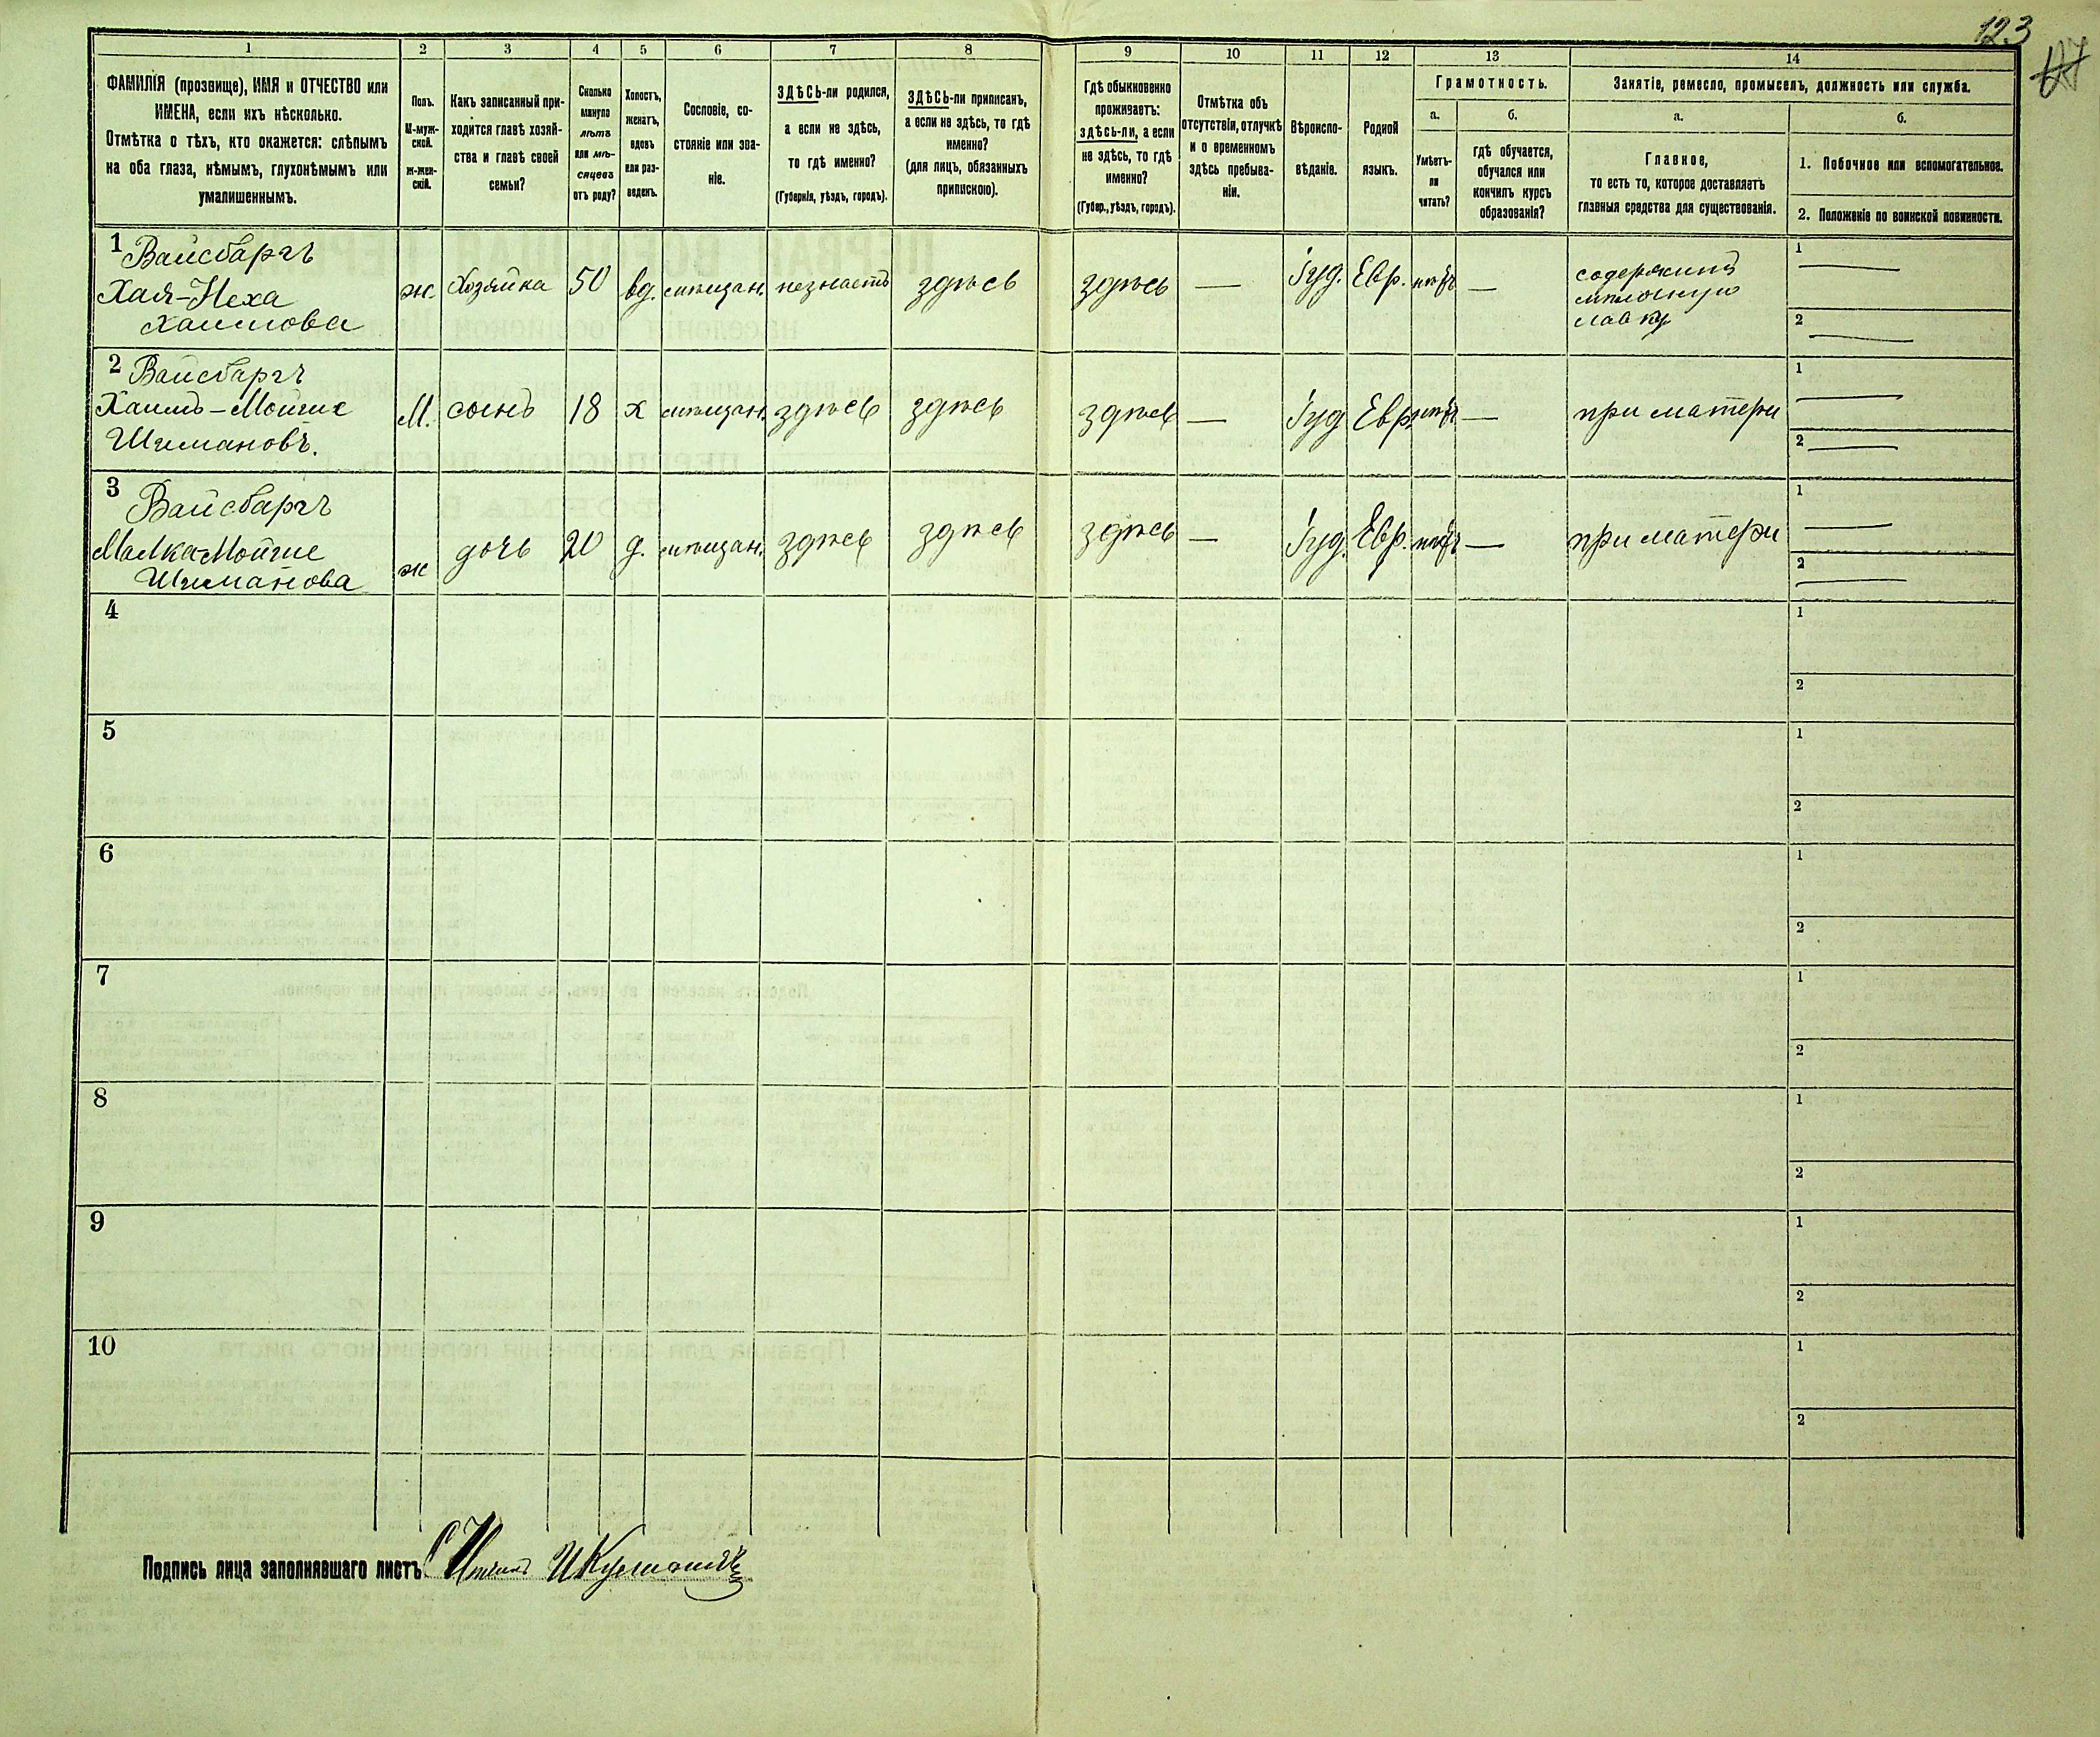 123
1 2 3 4 5 6 7 8 9 10 11 12 13 14
ФАМИЛІЯ (прозвище), ИМЯ и ОТЧЕСТВО или
ИМЕНА, если ихъ нѣсколько.
Отмѣтка о тѣхъ, кто окажется: слѣпымъ
на оба глаза, нѣмымъ, глухонѣмымъ или
умалишеннымъ.
Полъ.
М-муж-
ской.
Ж-жен-
скій.
Какъ записанный при-
ходится главѣ хозяй-
ства и главѣ своей
семьи?
Сколько
минуло
лѣтъ
или мѣ-
сяцевъ
отъ роду?
Холостъ,
женатъ,
вдовъ
или раз-
веденъ.
Сословіе, со-
стояніе или зва-
ніе.
ЗДѢСЬ-ли родился,
а если не здѣсь,
то гдѣ именно?
(Губернія, уѣздъ, городъ).
ЗДѢСЬ-ли приписанъ,
а если не здѣсь, то гдѣ
именно?
(для лицъ, обязанныхъ
припискою).
Гдѣ обыкновенно
проживаетъ:
здѣсь-ли, а если
не здѣсь, то гдѣ
именно?
(Губер., уѣздъ, городъ).
Отмѣтка объ
отсутствіи, отлучкѣ
и о временномъ
здѣсь пребыва-
ніи.
Вѣроиспо-
вѣданіе.
Родной
языкъ.
Грамотность.
а.
Умѣетъ-
ли
читать?
б.
гдѣ обучается,
обучался или
кончилъ курсъ
образованія?
Занятіе, ремесло, промыселъ, должность или служба.
а.
Главное,
то есть то, которое доставляетъ
главныя средства для существованія.
б.
1. Побочное или вспомогательное.
2. Положеніе по воинской повинности.
1 Вайсбаргъ
Хая-Неха
Хаимова
ж. Хозяйка 50 вд. мѣщан. не знаетъ здѣсь здѣсь — Іуд. Евр. нѣтъ —
содержитъ
мѣлочную
лавку
1 —
2 —
2 Вайсбаргъ
Хаимъ-Мойше
Шимановъ.
М. сынъ 18 х мѣщан. здѣсь здѣсь здѣсь — Іуд Евр. нѣтъ — при матери
1 —
2 —
3 Вайсбаргъ
Малка Мойше
Шиманова
ж дочь 20 д. мѣщан. здѣсь здѣсь здѣсь — Іуд. Евр. нѣтъ — при матери
1 —
2 —
4 1
2
5 1
2
6 1
2
7 1
2
8 1
2
9 1
2
10 1
2
Подпись лица заполнявшаго листъ